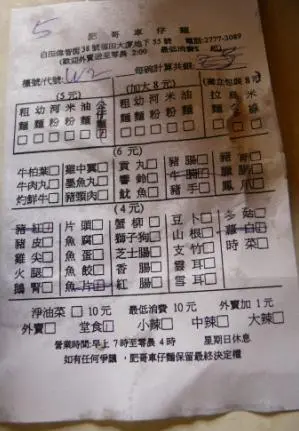 5
肥哥車仔麵
白田偉智街38號福田大廈地下55號 電話:2777-3089
(歡迎外賣送至零晨 2:00 最低消費
檯號/代號: 每碗計算共銀:
(5 元) (加大8元) (獨立包裝8元)
粗 幼 河 米 油 粗 幼 河 米 油 拉
麵 麵 粉 粉 麵 麵 麵 粉 粉 麵 麵
(6 元)
牛柏葉□ 雞中翼□ 貢丸□ 豬腸□
牛肉丸□ 墨魚丸□ 響鈴□
灼鮮牛□ 豬頸肉□ 魷魚□ 豬手□ 鳳爪□
(4元)
豬紅□ 片頭□ 蟹柳□ 豆卜□ 冬菇□
豬皮□ 魚腐□ 獅子狗□ 山根□ 蘿白□
雞尖□ 魚蛋□ 芝士腸□ 支竹□ 時菜□
火腿□ 魚餃□ 香腸□ 雲耳□
鵝腎□ 魚片□ 紅腸□ 雪耳□
淨油菜□10元 最低消費 10元 外賣加1元
外賣□ 堂食□ 小辣□ 中辣□ 大辣□
營業時間:早上7時至零晨4時 星期日休息
如有任何爭議,肥哥車仔麵保留最終決定權